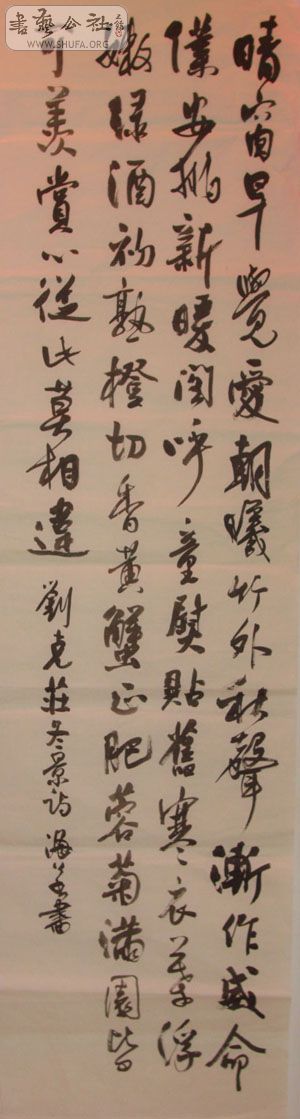 書藝公社
WWW.SHUFA.ORG
晴窗早覺愛朝曦竹外秋聲漸作威命
僕安排新暖閣呼童熨貼舊寒衣葉浮
嫩綠酒初熟橙切香黃蟹正肥蓉菊滿園皆
可羨賞心從此莫相違 劉克莊冬景詩 海書